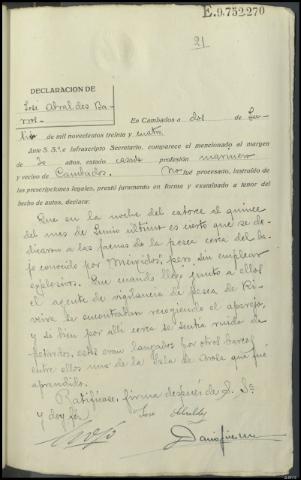 E.9.752270
21
DECLARACION DE
José Abal des Ba-
ros.-
En Cambados a dos de Ju-
lio de mil novecientos treinta y cuatro
Ante S. S.ª e infrascripto Secretario, comparece el mencionado al margen
de 30 años, estado casado profesión marinero
y vecino de Cambados. No fué procesado, instruído de
las prescripciones legales, prestó juramento en forma y examinado a tenor del
hecho de autos, declara:
Que en la noche del catorce al quince
del mes de Junio último es cierto que se de-
dicaron a las faenas de la pesca cerca del ba-
jo conocido por pero sin emplear
explosivos. Que cuando llegó junto a ellos
el agente de vigilancia de pesca de Ri-
veira se encontraban recogiendo el aparejo,
y si bien por allí cerca se sentía ruido de
petardos, estos eran lanzados por otros barcos
entre ellos uno de la Isla de Arosa que fué
aprendido.
Ratifícase, firma después de S. Sª
y doy fe
José